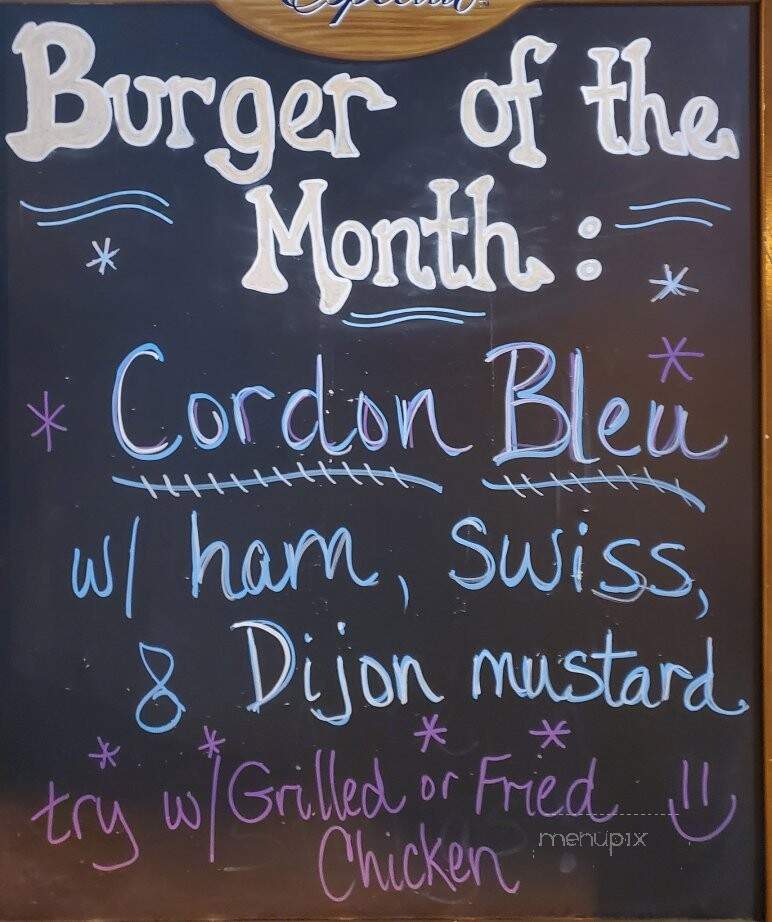 Especial
Burger of the
Month:
Cordon Bleu
w/ ham, Swiss,
& Dijon mustard
try w/ Grilled or Fried
Chicken
menupix